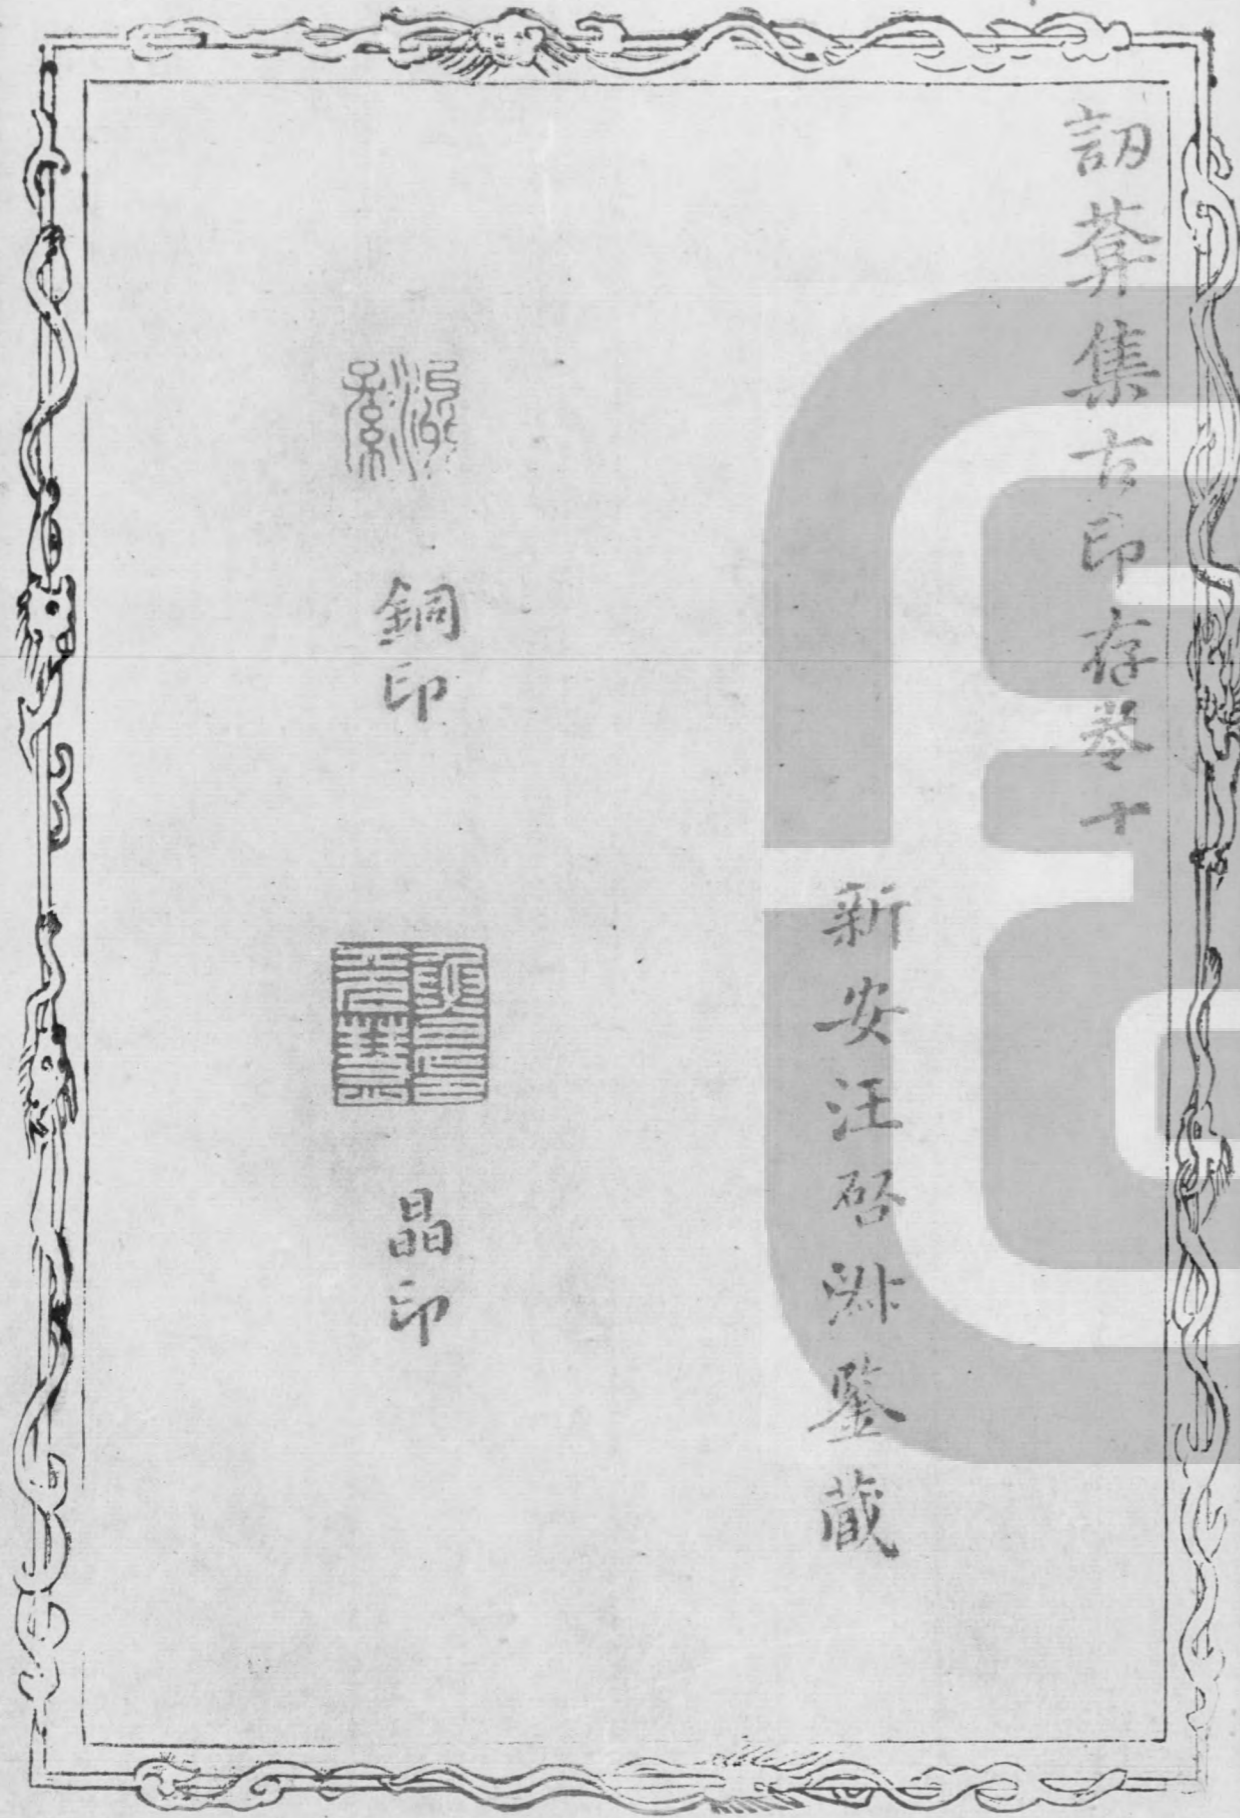 訒葊集古印存卷十
新安汪啓淑鑒藏
銅印
晶印